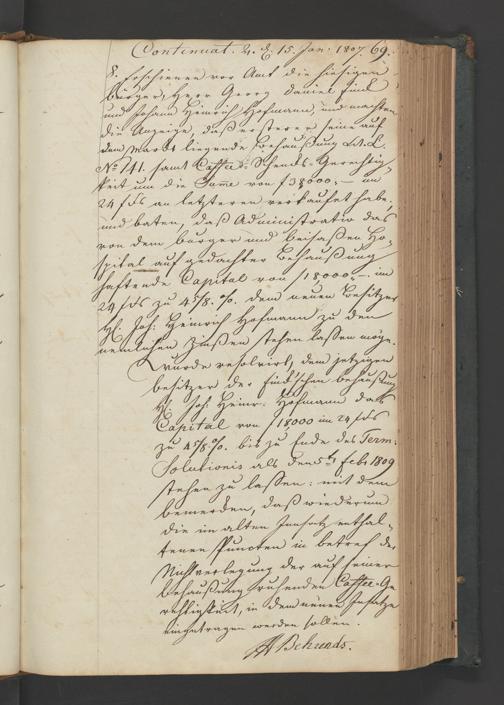 Continuat. 15. Jan. 1807. 69.
8. Erschienen vor Amt die hiesigen
Burger, Herr Georg Daniel Finck
und Johann Heinrich Hofmann, und machten
die Anzeige, daß ersterer seine auf
dem Markt liegende Behaußung Lit. L.
No 141. samt Caffee-Schenks-Gerechtig
keit um die Sume von f 38,000,- im
24 fl fs an letzteren verkaufet habe,
und baten, daß Administratio das
von dem burger und beisaßen Ho-
spital auf gedachter Behaußung
haftende Capital von f 18,000,- im
24 fl fs zu 4 5/8. %. dem neuen Besitzer
H. Joh. Heinrich Hofmann zu den
nemlichen Zinßen stehen laßen möge.
Wurde resolvirt, dem jetzigen
besitzer der Finck'schen behaußung
H. Joh. Heinr. Hofmann das
Capital von f 18,000 im 24 fl fs
zu 4 5/8 %. bis zu Ende des Term:
Solutionis als den Febr 1809
stehen zu laßen: mit dem
bemerken, daß wiederum
die im alten Insatz enthal-
tenen Puncten in betref der
Nichtverlegung der auf seiner
behaußung ruhenden Caffee-Ge
rechtigkeit, in dem neuen Insatze
eingetragen werden sollen.
Behrends.